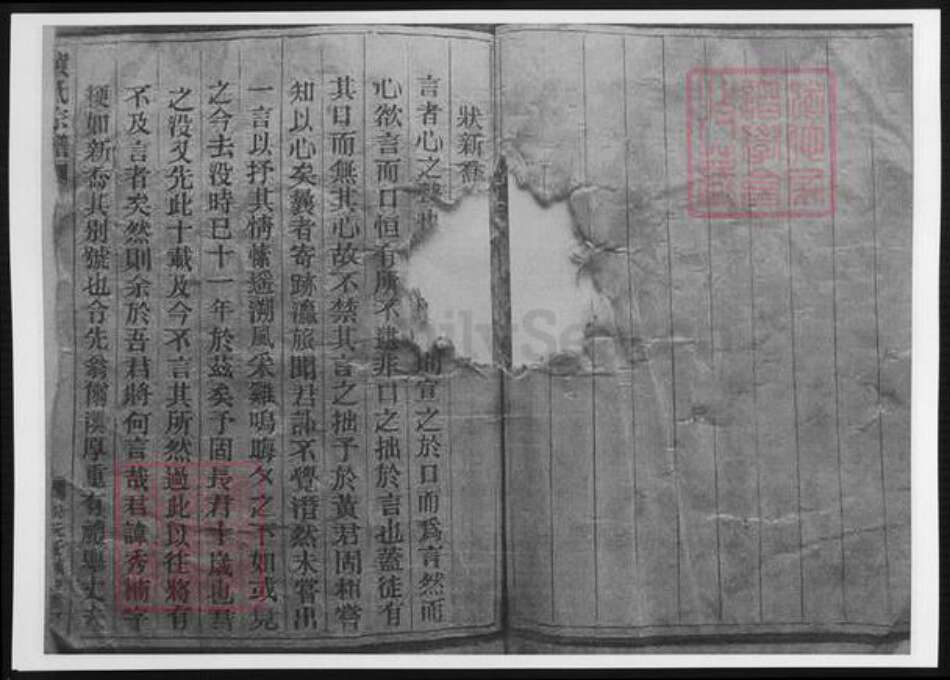 狀新喬
言者心之聲也 宣之於口而為言然而
心欲言而口恒有所不逮非口之拙於言也蓋徒有
其口而無其心故不禁其言之拙予於黃君固和嘗
知以心矣曩者寄跡瀛旅聞君訃不覺潸然未嘗出
一言以抒其情愫遙溯風采雞鳴晦夕之下如或見
之今去沒時已十一年於茲矣予固長君十歲也君
之沒又先此十載及今不言其所然過此以往將有
不及言者矣然則余於吾君將何言哉君諱秀楠字
梗如新喬其別號也令先翁 厚重有
氏宗譜